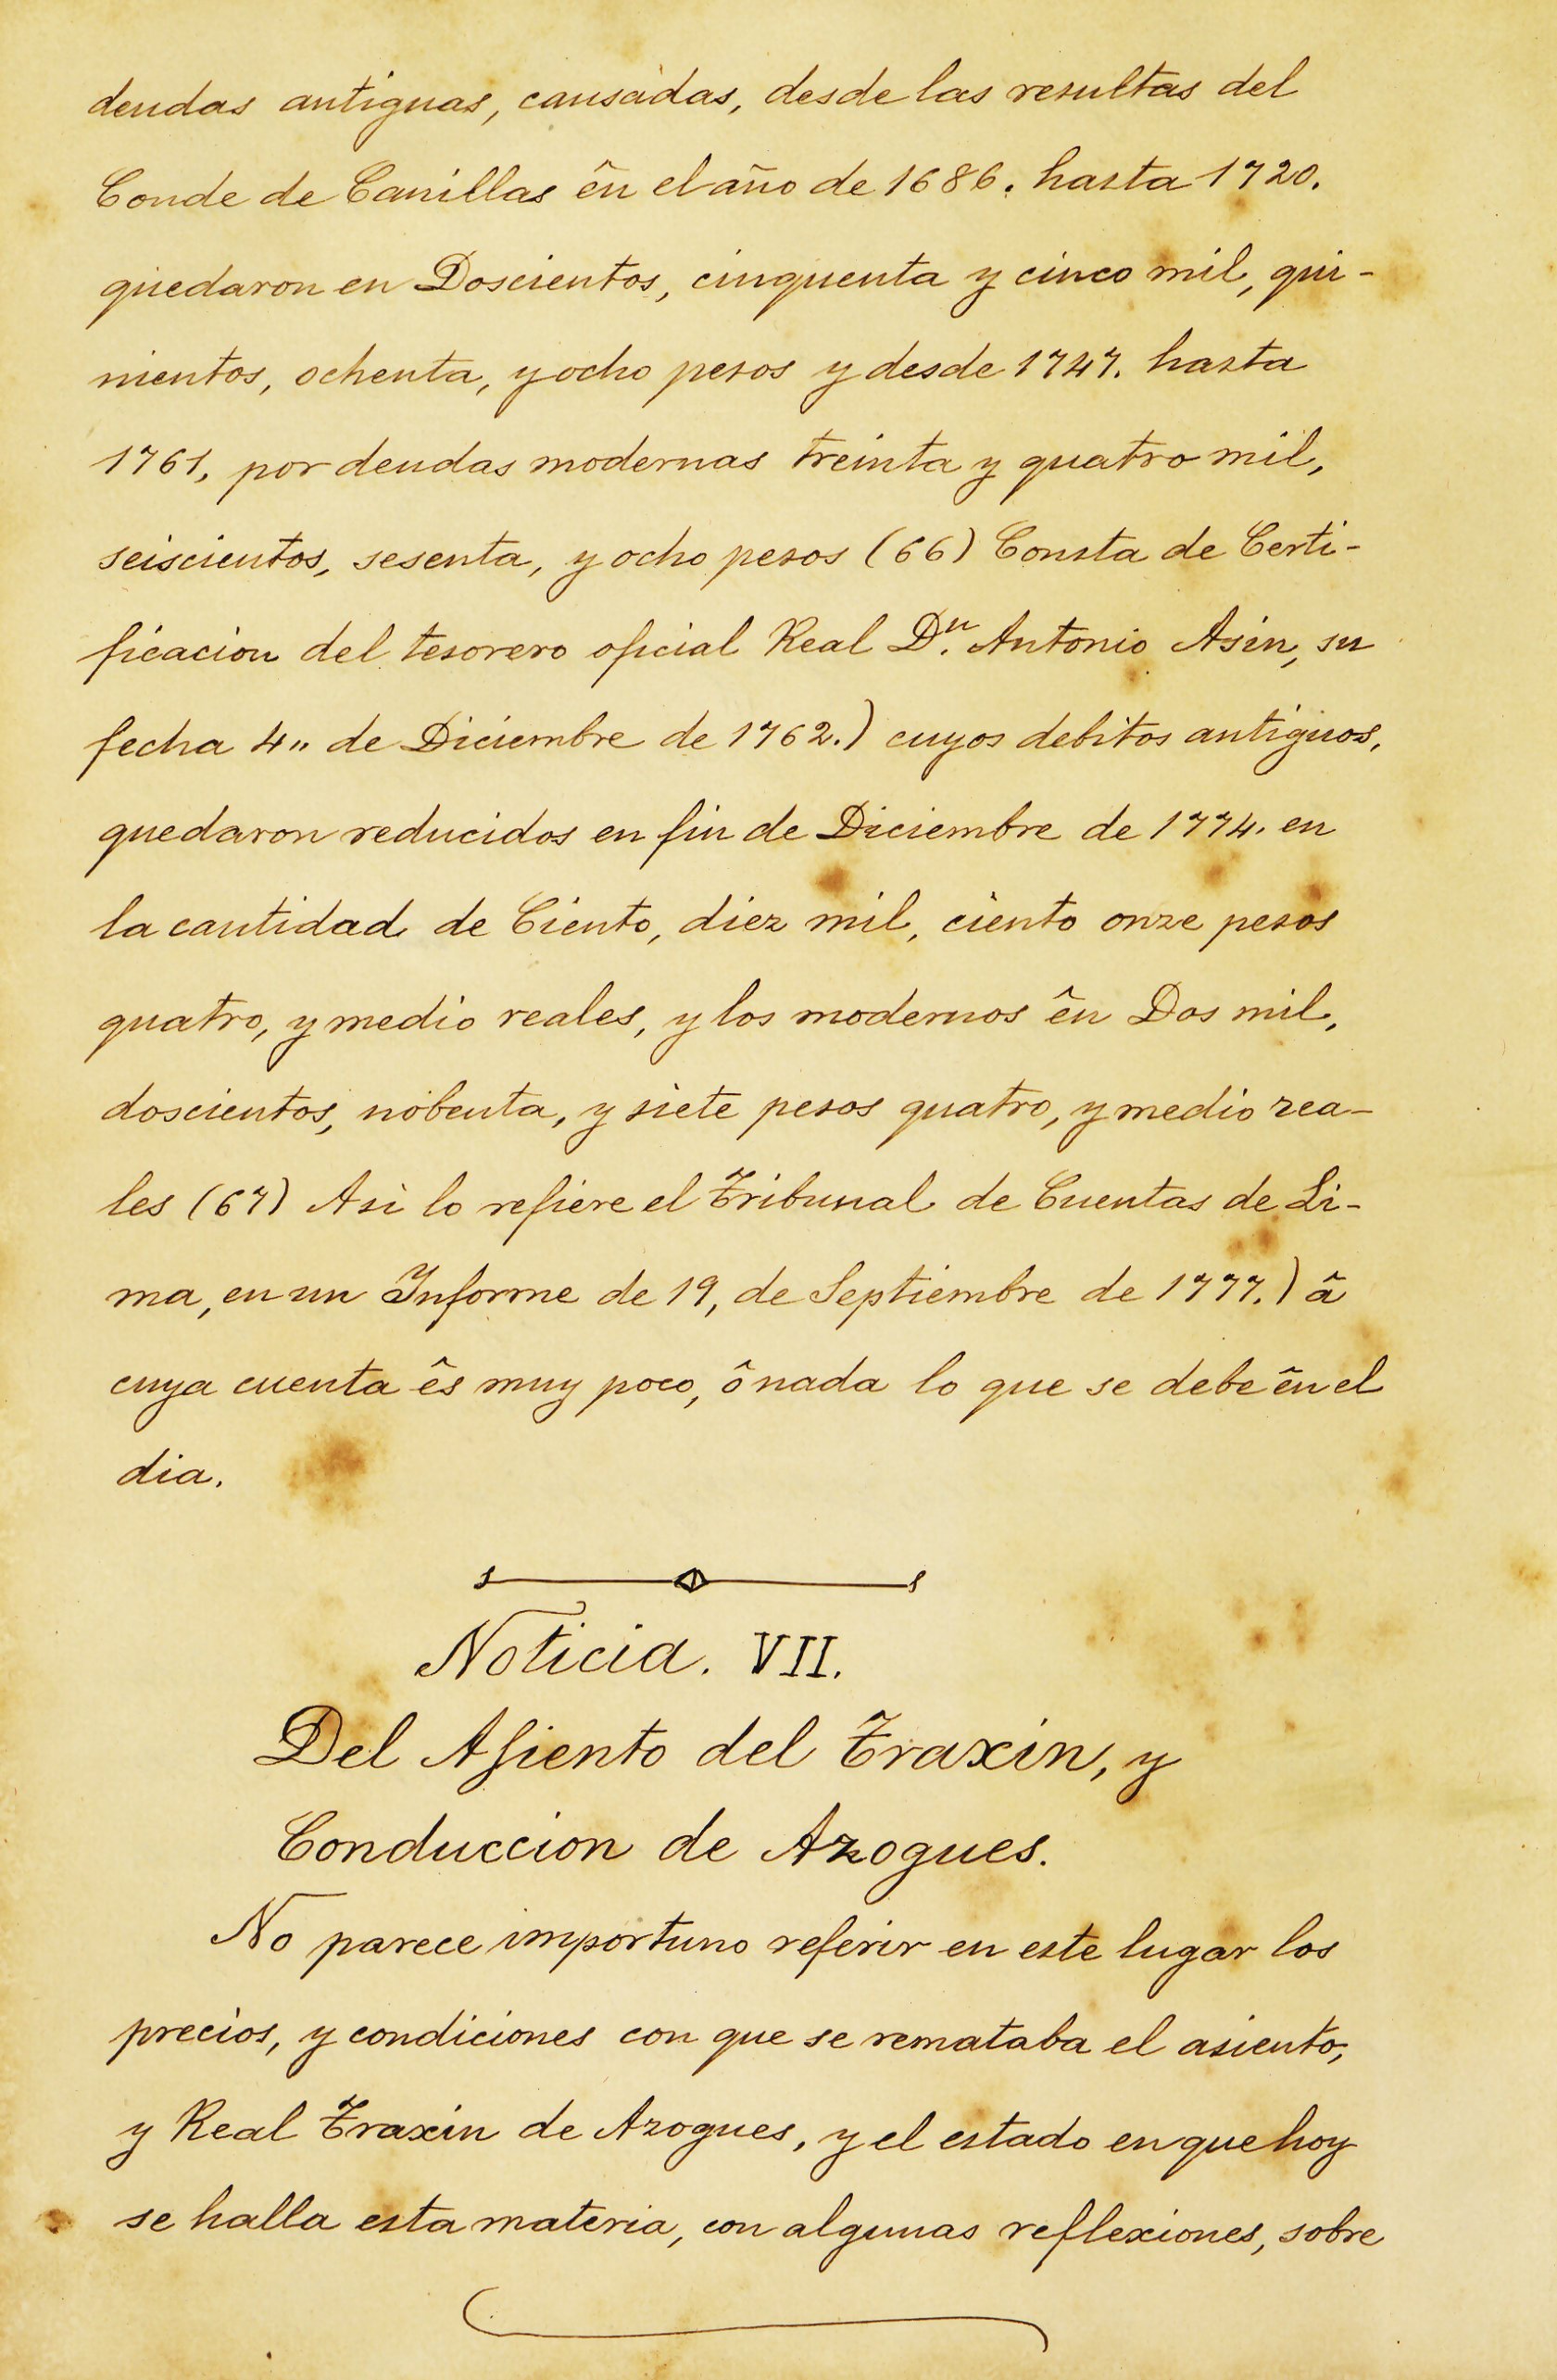 deudas antiguas, causadas, desde las resultas del
Conde de Canillas ên el año de 1686. hasta 1720.
quedaron en Doscientos, cinquenta y cinco mil, qui-
nientos, ochenta, y ocho pesos y desde 1747. hasta
1761, por deudas modernas treinta y quatro mil,
seiscientos, sesenta, y ocho pesos (66) Consta de Certi-
ficacion del tesorero oficial Real Dn. Antonio Asin, su
fecha 4,, de Diciembre de 1762.) cuyos debitos antiguos,
quedaron reducidos en fin de Diciembre de 1774. en
la cantidad de Ciento, diez mil, ciento onze pesos
quatro, y medio reales, y los modernos ên Dos mil,
doscientos, nobenta, y siete pesos quatro, y medio rea-
les (67) Asi lo refiere el Tribunal de Cuentas de Li-
ma, en un Informe de 19, de Septiembre de 1777.) â
cuya cuenta ês muy poco, ô nada lo que se debe ên el
dia.
Noticia. VII.
Del Asiento del Traxin, y
Conduccion de Azogues.
No parece importuno referir en este lugar los
precios, y condiciones con que se remataba el asiento,
y Real Traxin de Azogues, y el estado en que hoy
se halla esta materia, con algunas reflexiones, sobre